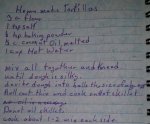 Homemade Tortillas
3 c flour
1 tsp salt
tsp baking powder
c. coconut Oil, melted
1 cup Hot Water
mix all together and knead
until dough is silky.
divide dough into balls the size of
Roll out thin and cook on hot skillet
Do not oil skillet
Cook about 1-2 min each side